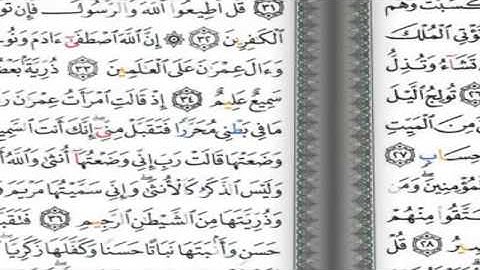 كَسَبَتْ وَهُمْ
تُؤْتِي ٱلْمُلْكَ
تَشَآءُ وَتُذِلُّ
تُولِجُ ٱلَّيْلَ
مِنَ ٱلْمَيِّتِ
حِسَابٍ ٢٧
ٱلْمُؤْمِنِينَ ۖ وَمَن
تَتَّقُوا۟ مِنْهُمْ
٢٨ قُلْ
٣١ قُلْ أَطِيعُوا۟ ٱللَّهَ وَٱلرَّسُولَ ۖ فَإِن
ٱلْكَٰفِرِينَ ٣٢ ۞ إِنَّ ٱللَّهَ ٱصْطَفَىٰٓ ءَادَمَ
وَءَالَ عِمْرَٰنَ عَلَى ٱلْعَٰلَمِينَ ٣٣ ذُرِّيَّةًۢ بَعْضُ
سَمِيعٌ عَلِيمٌ ٣٤ إِذْ قَالَتِ ٱمْرَأَتُ عِمْرَٰنَ
مَا فِى بَطْنِى مُحَرَّرًا فَتَقَبَّلْ مِنِّىٓ ۖ إِنَّكَ أَنتَ
وَضَعَتْهَا قَالَتْ رَبِّ إِنِّى وَضَعْتُهَآ أُنثَىٰ وَٱللَّهُ
وَلَيْسَ ٱلذَّكَرُ كَٱلْأُنثَىٰ ۖ وَإِنِّى سَمَّيْتُهَا مَرْيَمَ
وَذُرِّيَّتَهَا مِنَ ٱلشَّيْطَٰنِ ٱلرَّجِيمِ ٣٦
حَسَنٍ وَأَنۢبَتَهَا نَبَاتًا حَسَنًا وَكَفَّلَهَا زَكَرِيَّا ۖ